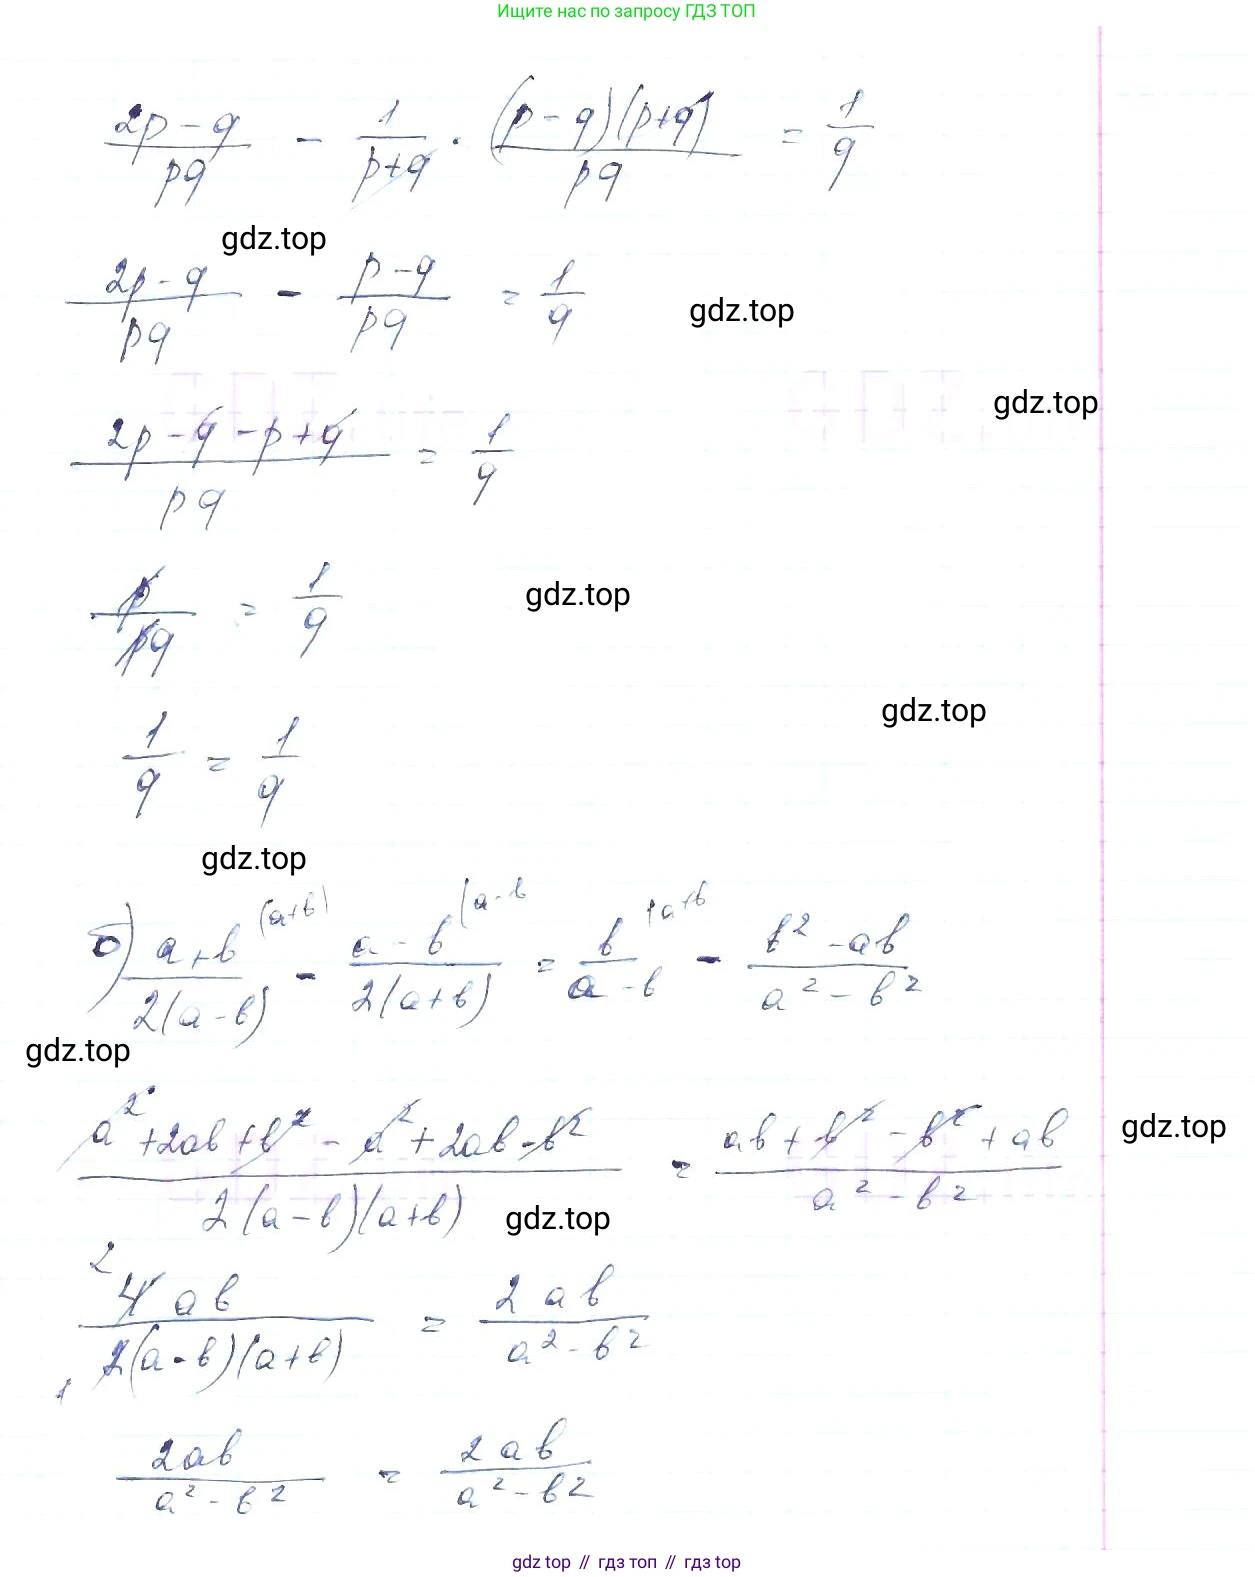 Ищите нас по запросу ГДЗ ТОП
(2p - q)/(pq) - 1/(p+q) · (p - q)(p+q)/(pq) = 1/q
gdz.top
(2p - q)/(pq) - (p - q)/(pq) = 1/q
gdz.top
gdz.top
(2p - q - p + q)/(pq) = 1/q
p/(pq) = 1/q
gdz.top
gdz.top
1/q = 1/q
gdz.top
б) (a+b)/(2(a-b)) (a+b) - (a-b)/(2(a+b)) (a-b = b/(a-b) (a+b - (b² - ab)/(a² - b²)
gdz.top
(a² + 2ab + b² - a² + 2ab - b²)/(2(a-b)(a+b)) = (ab + b² - b² + ab)/(a² - b²)
gdz.top
gdz.top
2 4ab/(2(a-b)(a+b)) 1 = 2ab/(a² - b²)
2ab/(a² - b²) = 2ab/(a² - b²)
gdz top // гдз топ // gdz top